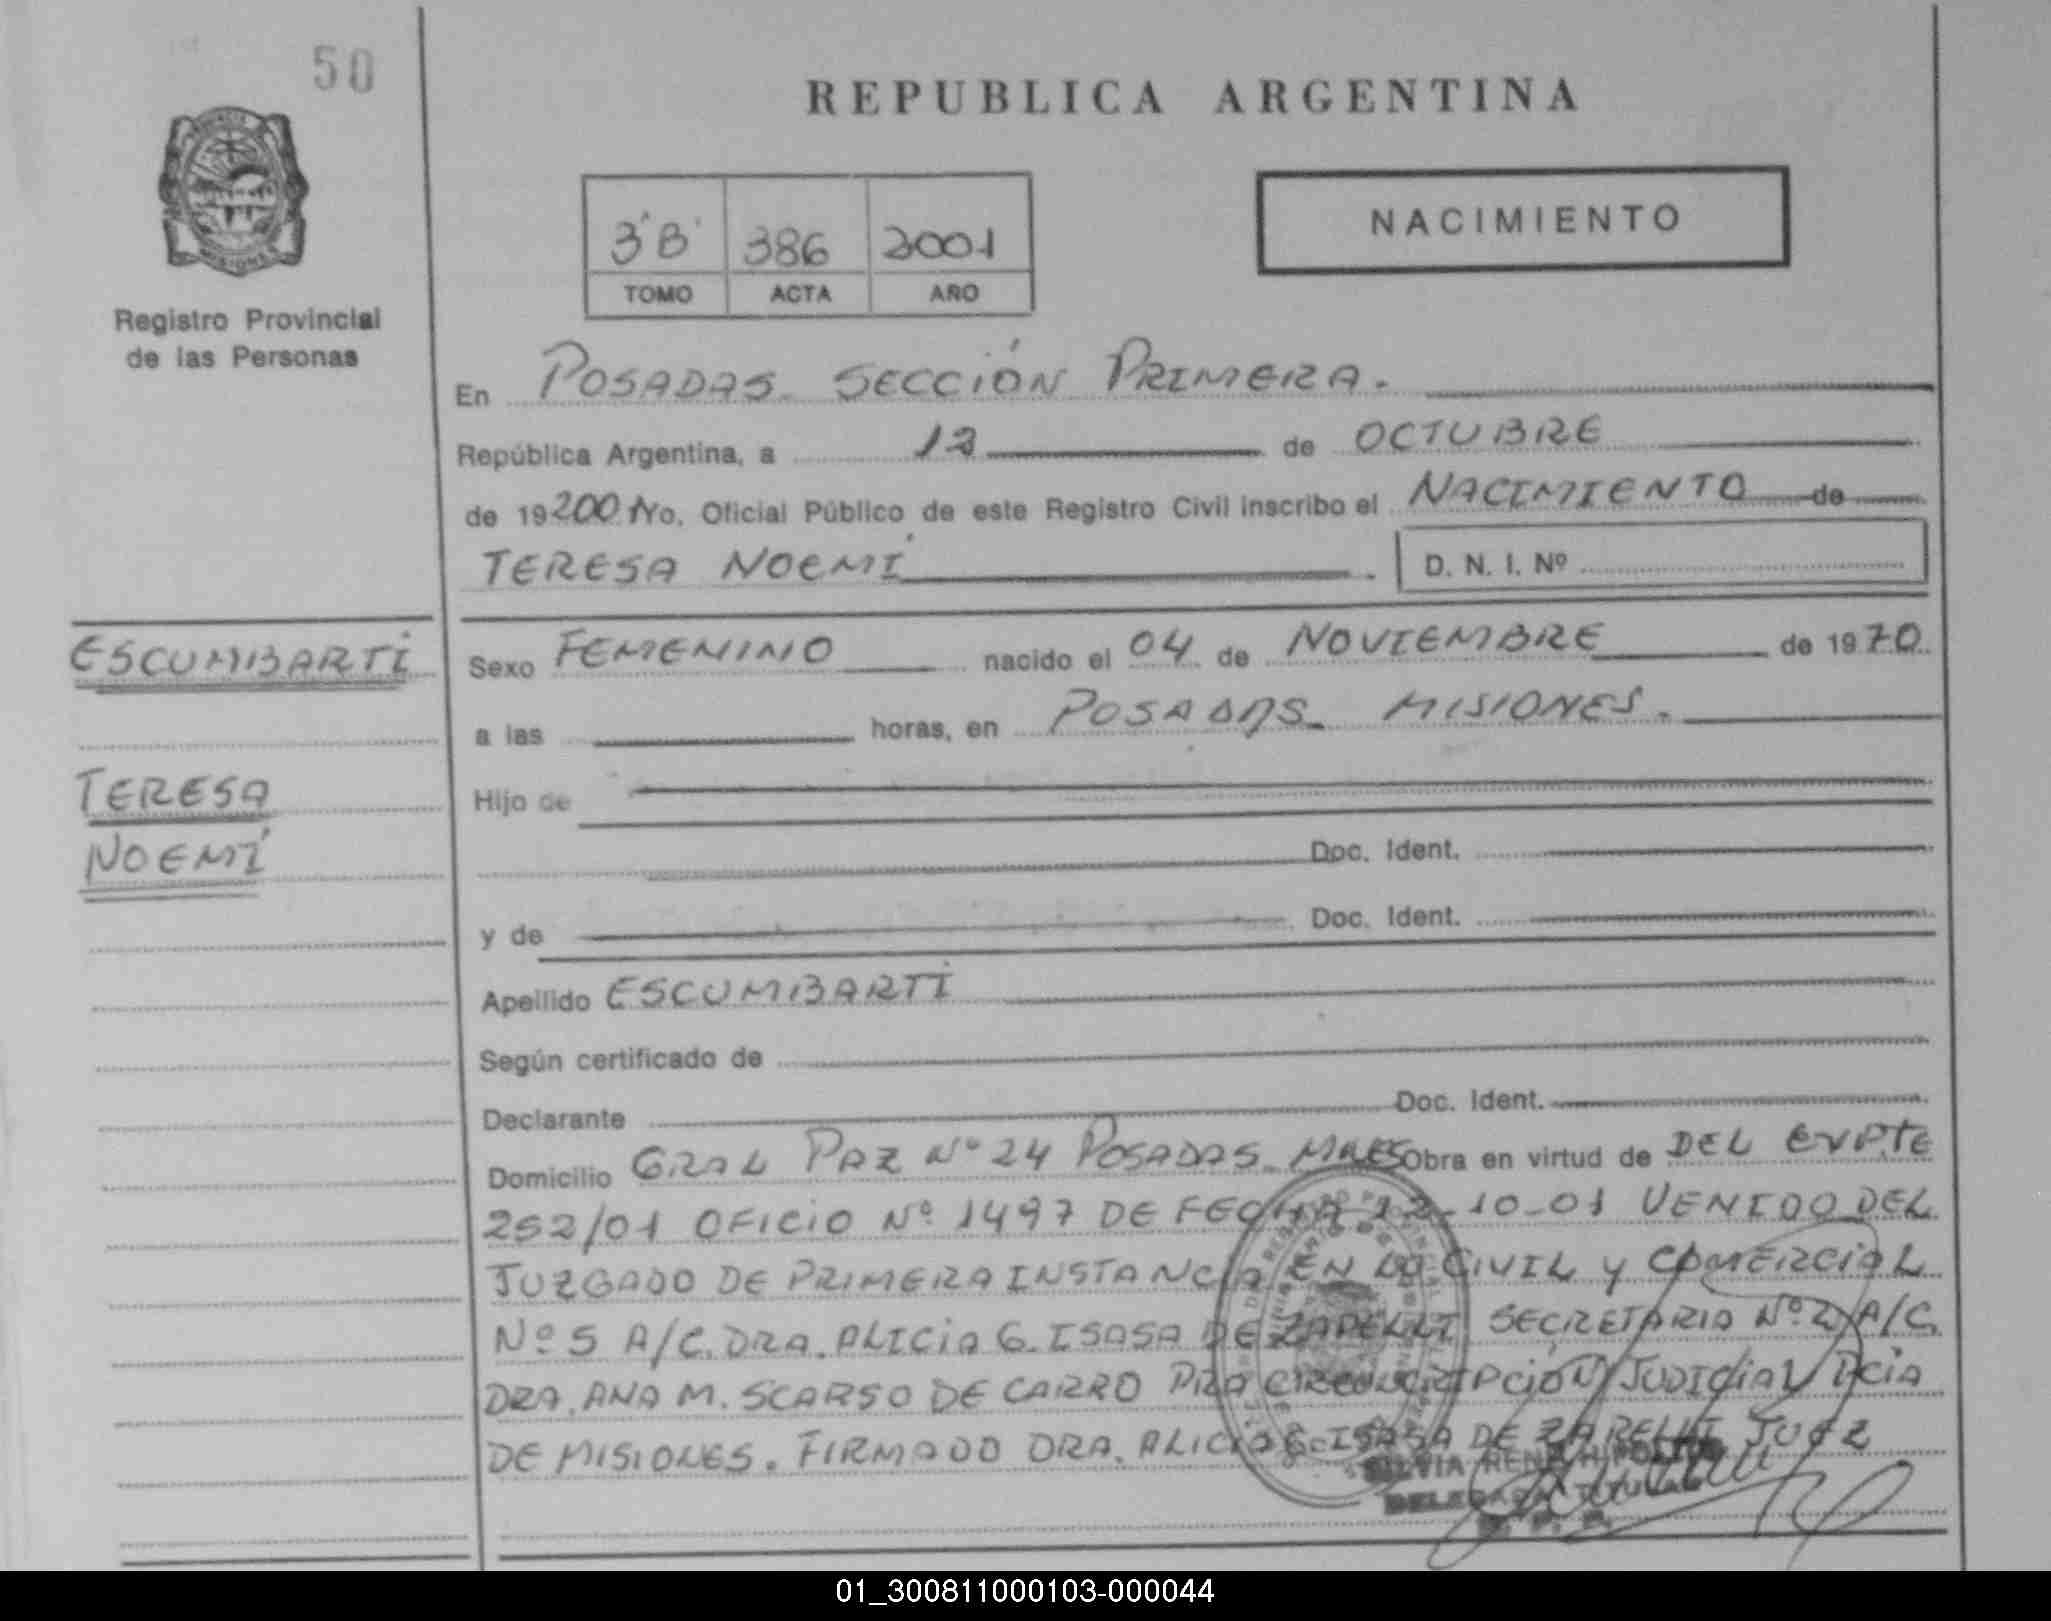 50
REPUBLICA ARGENTINA
3 "B" 386 2001
TOMO ACTA AÑO
NACIMIENTO
Registro Provincial
de las Personas
En POSADAS - SECCIÓN PRIMERA.
República Argentina, a 12 de OCTUBRE
de 19 2001 Yo, Oficial Público de este Registro Civil inscribo el NACIMIENTO de
TERESA NOEMÍ D. N. I. Nº
ESCUMBARTI
Sexo FEMENINO nacido el 04 de NOVIEMBRE de 1970
a las horas, en POSADAS - MISIONES.
TERESA
NOEMÍ
Hijo de
Doc. Ident.
y de Doc. Ident.
Apellido ESCUMBARTI
Según certificado de
Declarante Doc. Ident.
Domicilio GRAL PAZ Nº 24 POSADAS - MNES Obra en virtud de DEL EXPTE
252/01 OFICIO Nº 1497 DE FECHA 12-10-01 VENIDO DEL
JUZGADO DE PRIMERA INSTANCIA EN LO CIVIL Y COMERCIAL
Nº 5 A/C. DRA. ALICIA G. ISASA DE ZARELLI SECRETARIA Nº 2 A/C.
DRA. ANA M. SCARSO DE CARRO PRA CIRCUNCRIPCIÓN JUDICIAL PCIA
DE MISIONES. FIRMADO DRA. ALICIA G. ISASA DE ZARELLI JUEZ
SILVIA RENE HIPOLITO
DELEGADA TITULAR
R. P. P.
01_300811000103-000044